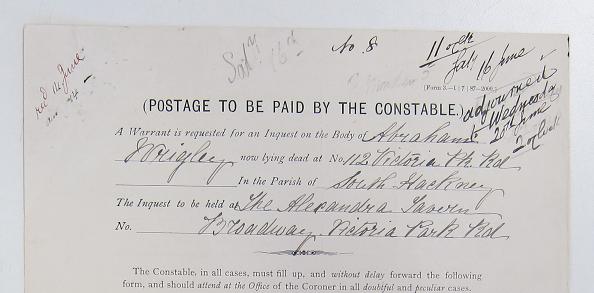 No. 8
11 o'clk
Saty 16 June
Saty 16th
red 14 June
[Form 3.—1 | 7 | 87—2000.]
adjourned
to Wednesday
20th June
2 o'clock
(POSTAGE TO BE PAID BY THE CONSTABLE.)
A Warrant is requested for an Inquest on the Body of Abraham
Wrigley now lying dead at No. 112 Victoria Pk Rd
In the Parish of South Hackney
The Inquest to be held at The Alexandra Tavern
No. Broadway Victoria Park Rd
The Constable, in all cases, must fill up, and without delay forward the following
form, and should attend at the Office of the Coroner in all doubtful and peculiar cases.